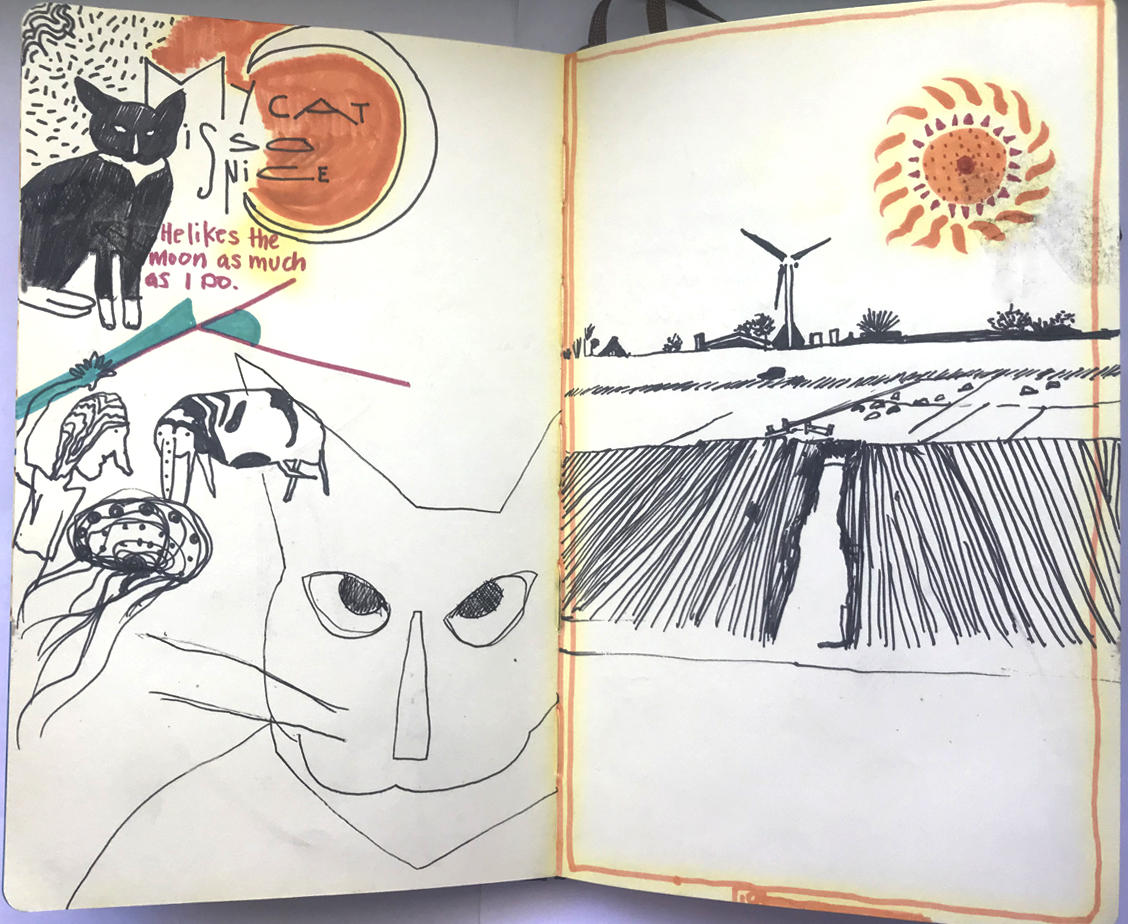 MY CAT
is SO
NiCE
He likes the
Moon as much
as I DO.